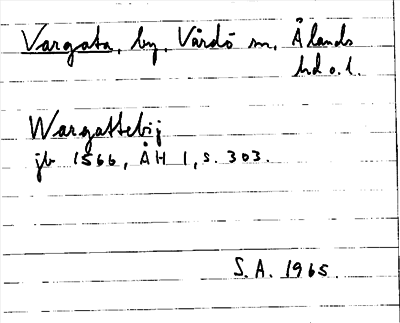 Vargata, by, Vårdö sn, Ålands
hd o. l.
Wargattebij
jb 1566, ÅH 1, s. 303.
S.A. 1965.